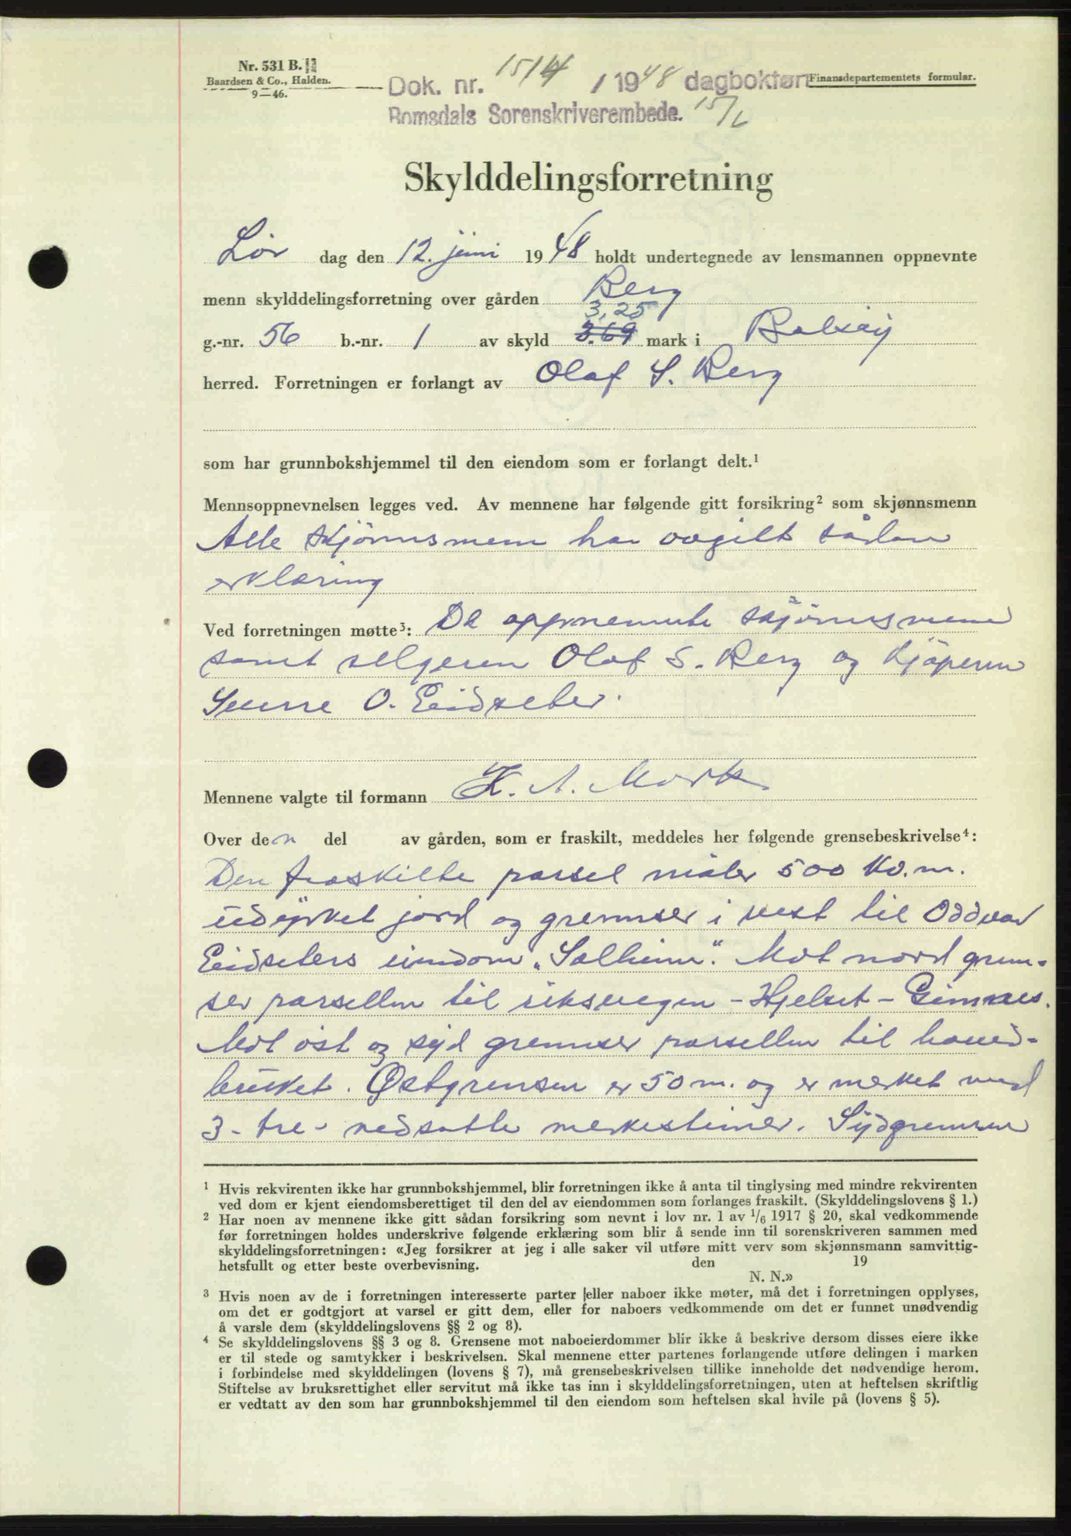 Nr. 531 B.
Baardsen & Co., Halden.
9—46.
Dok. nr. 1514 / 1948 dagbokført
Finansdepartementets formular.
Romsdals Sorenskriverembede. 15/6
Skylddelingsforretning
Lør dag den 12. juni 1948 holdt undertegnede av lensmannen oppnevnte
menn skylddelingsforretning over gården Berg
3,25
g.-nr. 56 b.-nr. 1 av skyld 3.69 mark i Bolsøy
herred. Forretningen er forlangt av Olaf S. Berg
som har grunnbokshjemmel til den eiendom som er forlangt delt.¹
Mennsoppnevnelsen legges ved. Av mennene har følgende gitt forsikring² som skjønnsmenn
Alle skjønnsmenn har avgitt sådan
erklæring
Ved forretningen møtte³: De oppnevnte skjønnsmenn
samt selgeren Olaf S. Berg og kjøperen
Sverre O. Eidseter.
Mennene valgte til formann K. A. Mork
Over den del av gården, som er fraskilt, meddeles her følgende grensebeskrivelse⁴:
Den fraskilte parsel måler 500 kv.m.
udyrket jord og grenser i vest til Oddvar
Eidseters eiendom „Solheim". Mot nord gren-
ser parsellen til riksvegen - Hjelset - Gimnes.
Mot øst og syd grenser parsellen til hoved-
bruket. Østgrensen er 50 m. og er merket med
3 - tre - nedsatte merkesteiner. Sydgrensen
¹ Hvis rekvirenten ikke har grunnbokshjemmel, blir forretningen ikke å anta til tinglysing med mindre rekvirenten
ved dom er kjent eiendomsberettiget til den del av eiendommen som forlanges fraskilt. (Skylddelingslovens § 1.)
² Har noen av mennene ikke gitt sådan forsikring som nevnt i lov nr. 1 av 1/6 1917 § 20, skal vedkommende
før forretningen holdes underskrive følgende erklæring som blir å sende inn til sorenskriveren sammen med
skylddelingsforretningen: «Jeg forsikrer at jeg i alle saker vil utføre mitt verv som skjønnsmann samvittig-
hetsfullt og etter beste overbevisning. den 19
N. N.»
³ Hvis noen av de i forretningen interesserte parter eller naboer ikke møter, må det i forretningen opplyses,
om det er godtgjort at varsel er gitt dem, eller for naboers vedkommende om det er funnet unødvendig
å varsle dem (skylddelingslovens §§ 2 og 8).
⁴ Se skylddelingslovens §§ 3 og 8. Grensene mot naboeierdommer blir ikke å beskrive dersom disses eiere ikke
er til stede og samtykker i beskrivelsen. Skal mennene etter partenes forlangende utføre delingen i marken
i forbindelse med skylddelingen (lovens § 7), må grensebeskrivelsen tillike inneholde det nødvendige herom.
Stiftelse av bruksrettighet eller servitut må ikke tas inn i skylddelingsforretningen, uten at heftelsen skriftlig
er vedtatt av den som har grunnbokshjemmel til den eiendom som heftelsen skal hvile på (lovens § 5).